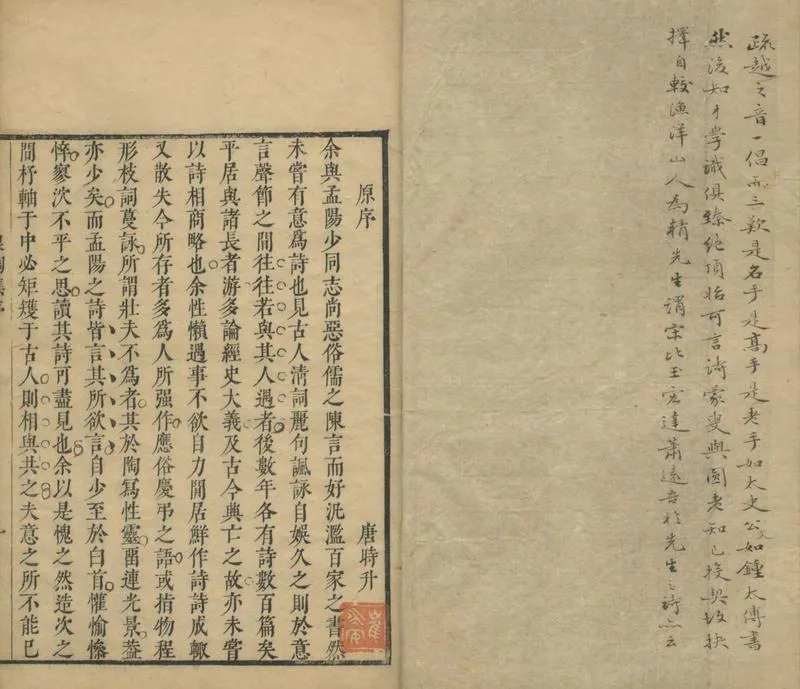 疏越之音一倡而三歎是名手是高手是老手如太史公文如鍾太傅書
然後知才學識俱臻絶頂始可言詩蒙叟與圓老知己投契故抉
擇自較漁洋山人為精先生謂宗比玉宏達蕭遠吾於先生之詩亦云
原序
唐時升
余與孟陽少同志尚惡俗儒之陳言而好汎濫百家之書然
未嘗有意爲詩也見古人淸詞麗句諷詠自娛久之則於意
言聲節之間往往若與其人遇者後數年各有詩數百篇矣
平居與諸長者游多論經史大義及古今興亡之故亦未嘗
以詩相商略也余性懶遇事不欲自力閒居鮮作詩詩成輙
又散失今所存者多爲人所强作應俗慶弔之語或指物程
形枝詞蔓詠所謂壯夫不爲者其於陶寫性靈畱連光景葢
亦少矣而孟陽之詩皆言其所欲言自少至於白首懽愉慘
悴寥泬不平之思讀其詩可盡見也余以是愧之然造次之
間杼軸于中必矩矱于古人則相與共之夫意之所不能已
一